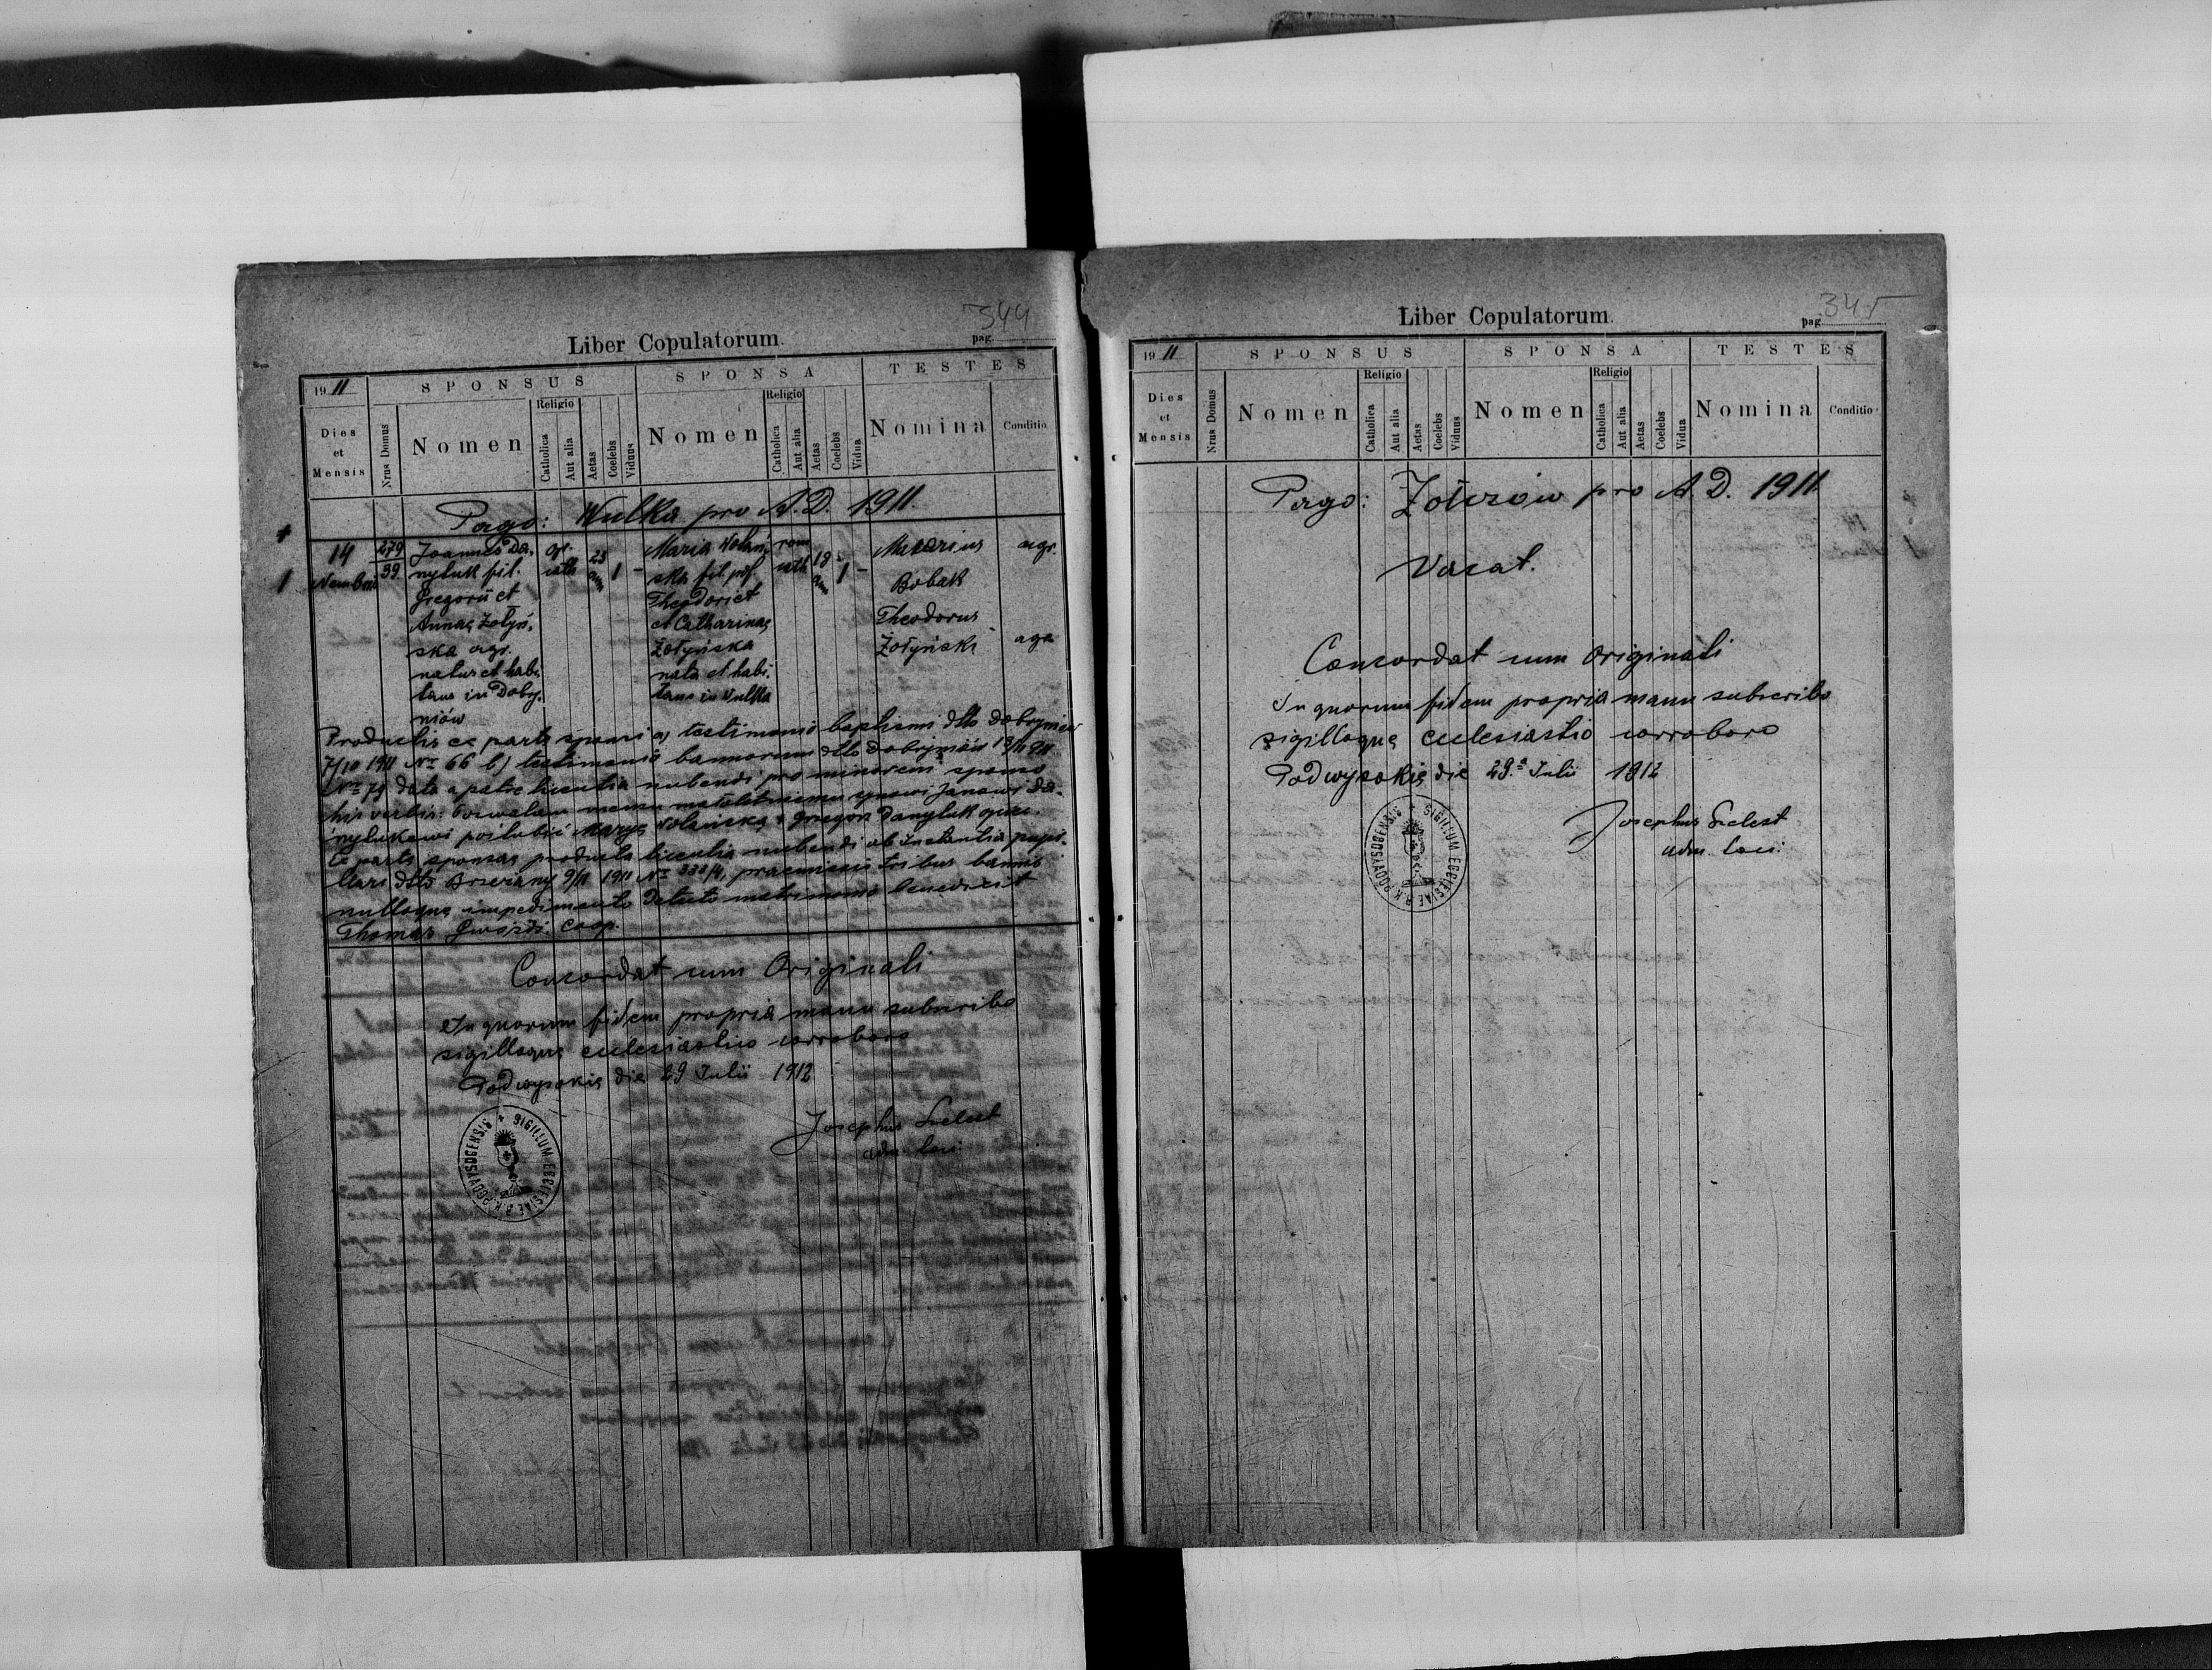 344
Liber Copulatorum.
pag.
1911
SPONSUS
SPONSA
TESTES
Dies et Mensis
Nrus Domus
Nomen
Religio
Catholica
Aut alia
Aetas
Coelebs
Viduus
Nomen
Religio
Catholica
Aut alia
Aetas
Coelebs
Vidua
Nomina
Conditio
Pago: Wulka pro A.D. 1911.
1
14 Novembris
279
99
Joannes Da-
nyluk fil.
Gregorii et
Annae Żołyń-
ska agr.
natus et habi-
tans in Dobry-
niów
gr. cath
23 ann
1
-
Maria Wolań-
ska fil. pof.
Theodori et
et Catharinae
Żołyńska
nata et habi-
tans in Wulka
rom cath
18 ann
1
-
Macarius
Bobak
Theodorus
Żołyński
agr.
agr
Productis ex parte sponsi a) testimonio baptismi dtto Dobryniów
7/10 1911 Nr 66 b) testimonio bannorum dtto Dobryniów 13/11 911
Nr 79 data a patre licentia nubendi pro minoreni sponso
his verbis: Pozwalam memu małoletniemu synowi Janowi Da-
nylukowi poślubić Maryę Wolańską + Grzegorz Danyluk
Ex parte sponsae producta licentia nubendi ab Instantia pupi-
llari dtto Brzeżany 9/11 1911 praemissis tribus bannis
nulloque impedimento detecto matrimonio benedixit
Thomas coop.
Concordat cum Originali
In quorum fidem propria manu subscribo
sigilloque ecclesiastico corroboro
Podwysokie die 29 Julii 1912
Josephus
adm. loci.
SIGILLUM ECCLESIAE R. PODVYSOCENSIS
345
Liber Copulatorum.
pag
1911
SPONSUS
SPONSA
TESTES
Dies et Mensis
Nrus Domus
Nomen
Religio
Catholica
Aut alia
Aetas
Coelebs
Viduus
Nomen
Religio
Catholica
Aut alia
Aetas
Coelebs
Vidua
Nomina
Conditio
Pago: Żołczów pro A.D. 1911
Vacat.
Concordat cum Originali
In quorum fidem propria manu subscribo
sigilloque ecclesiastio corroboro
Podwysokie die 29. Julii 1912
Josephus
adm. loci.
SIGILLUM ECCLESIAE R. PODVYSOCENSIS